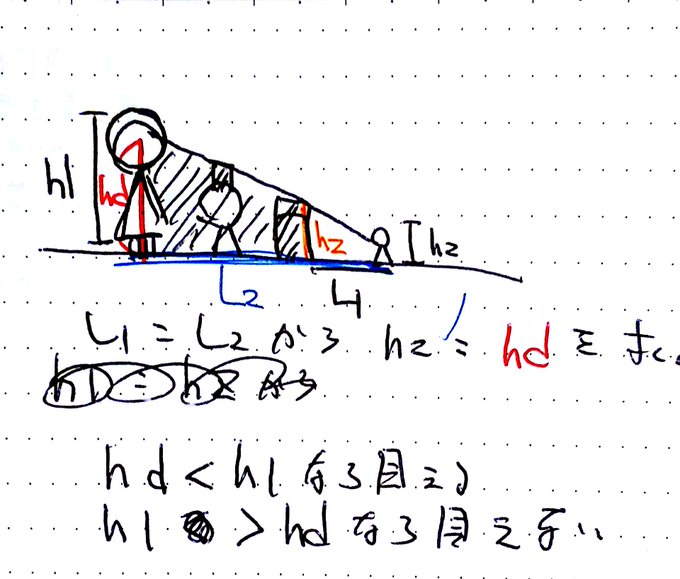 h1
hd
hz
hz
L2
L1
L1 = L2 から hz = hd を
h1 = hz から
hd < h1 なら目える
h1 > hd なら目えない